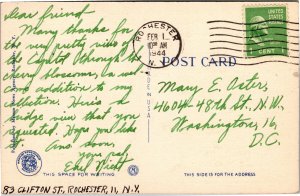 Dear friend
Many thanks for
the very pretty view of
the Capitol through the
cherry blossoms, a
addition to my
collection. Here's a
view that you
requested. Hope you like
and down
83 CLIFTON ST., ROCHESTER, 11, N.Y.
THIS SPACE FOR WRITING
ROCHESTER
FEB 1
10 AM
1944
N.Y.
UNITED STATES
POSTAGE
1 CENT 1
POST CARD
MADE IN USA
Mary E. Oster,
4604-48th St. N.W.
Washington, 16,
D.C.
THIS SIDE IS FOR THE ADDRESS